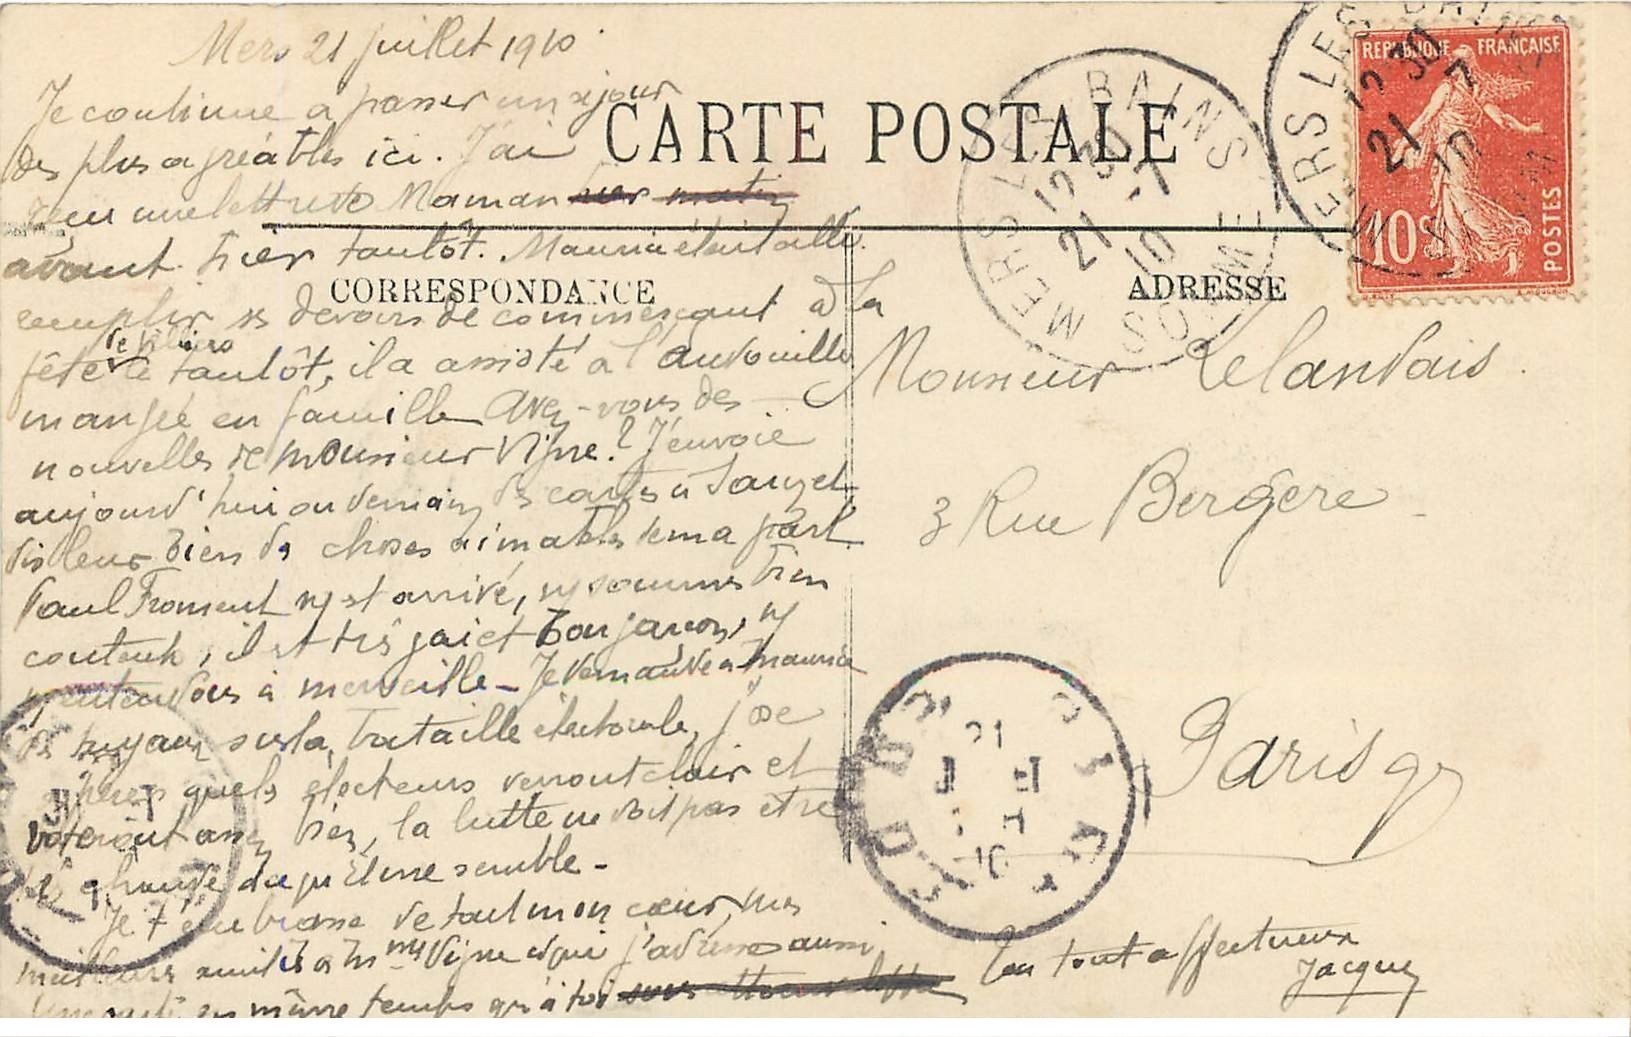 Mers 21 juillet 1910.
Je continue a passer un séjour
des plus agréables ici. J'ai
reçu une lettre de Maman hier matin
avant hier tantôt. Maurice était allé
remplir ses devoirs de commerçant à la
fête de Villiers à tantôt, il a assisté à l'andouille
mangée en famille Avez-vous des
nouvelles de monsieur Vigne? J'envoie
aujourd'hui ou demain des cartes à
dis leur bien des choses aimables de ma part
Paul Froment ns est arrivé, ns sommes bien
contents, il est très gai et bon garçon, ns
ns entendons à merveille - Je demande à Maurice
des sur la bataille électorale, j'ose
espérer que les electeurs verront clair et
voteront assez bien, la lutte ne doit pas être
très chaude à ce qu'il me semble -
Je t'embrasse de tout mon cœur, mes
meilleurs amitiés à Mme Vigne à qui j'adresse aussi
une carte en même temps qu'à toi
Ton tout affectueux
Jacques
CARTE POSTALE
CORRESPONDANCE
ADRESSE
Monsieur Delandais
3 Rue Bergere
Paris 9e
MERS LES BAINS
12 30
21 -7
10
SOMME
MERS LES BAINS
12 30
21 7
10
REPUBLIQUE FRANÇAISE
10c
POSTES